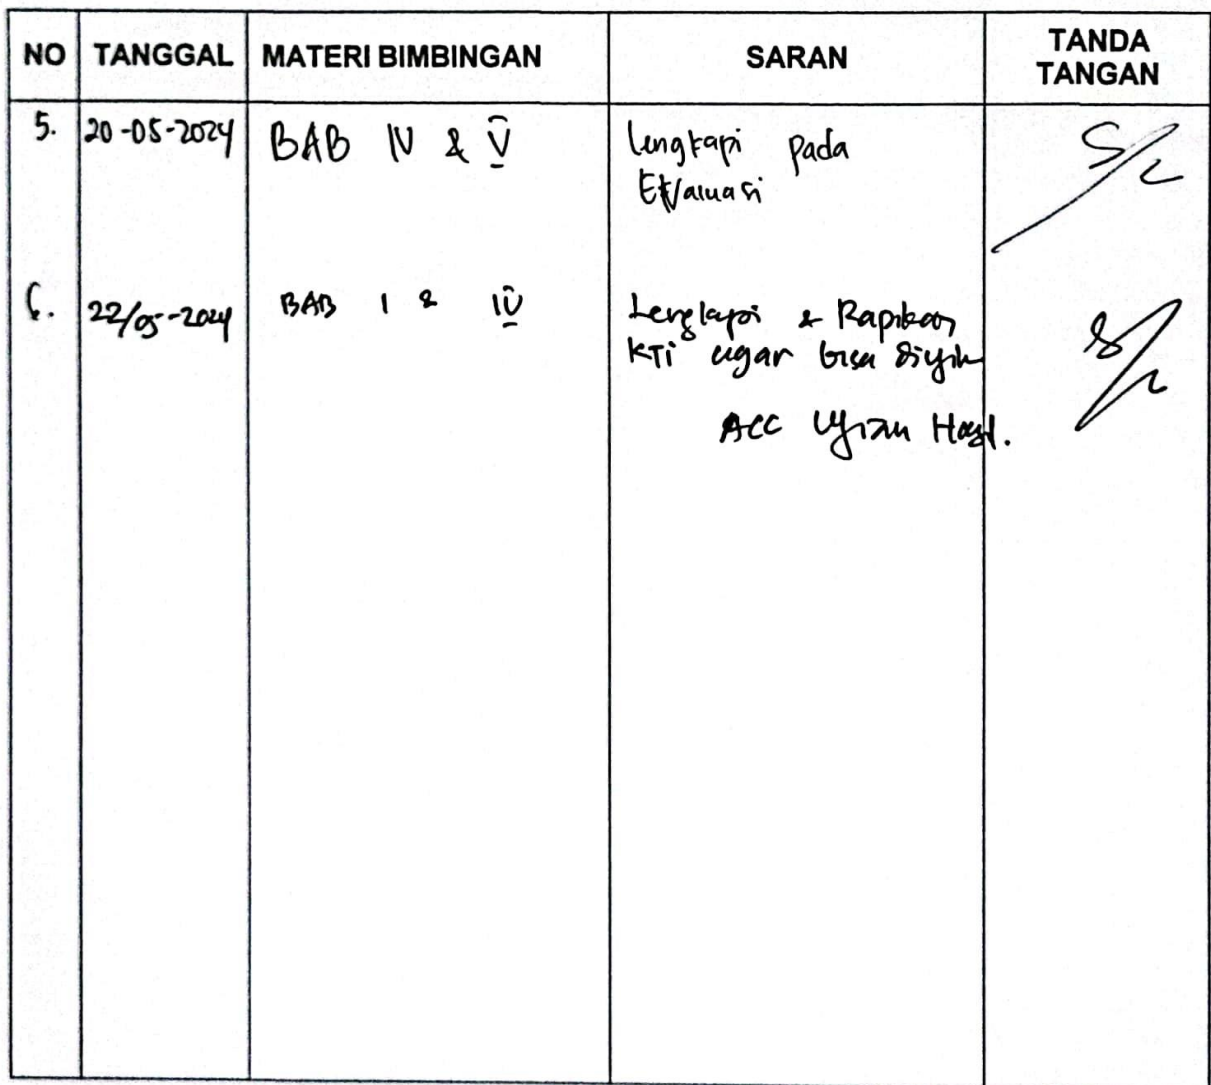 NO TANGGAL MATERI BIMBINGAN SARAN TANDA TANGAN
5. 20-05-2024 BAB IV & V Lengkapi pada
Evaluasi
6. 22/05-2024 BAB I & IV Lengkapi & Rapikan
KTI agar bisa diujikan
ACC Ujian Hasil.